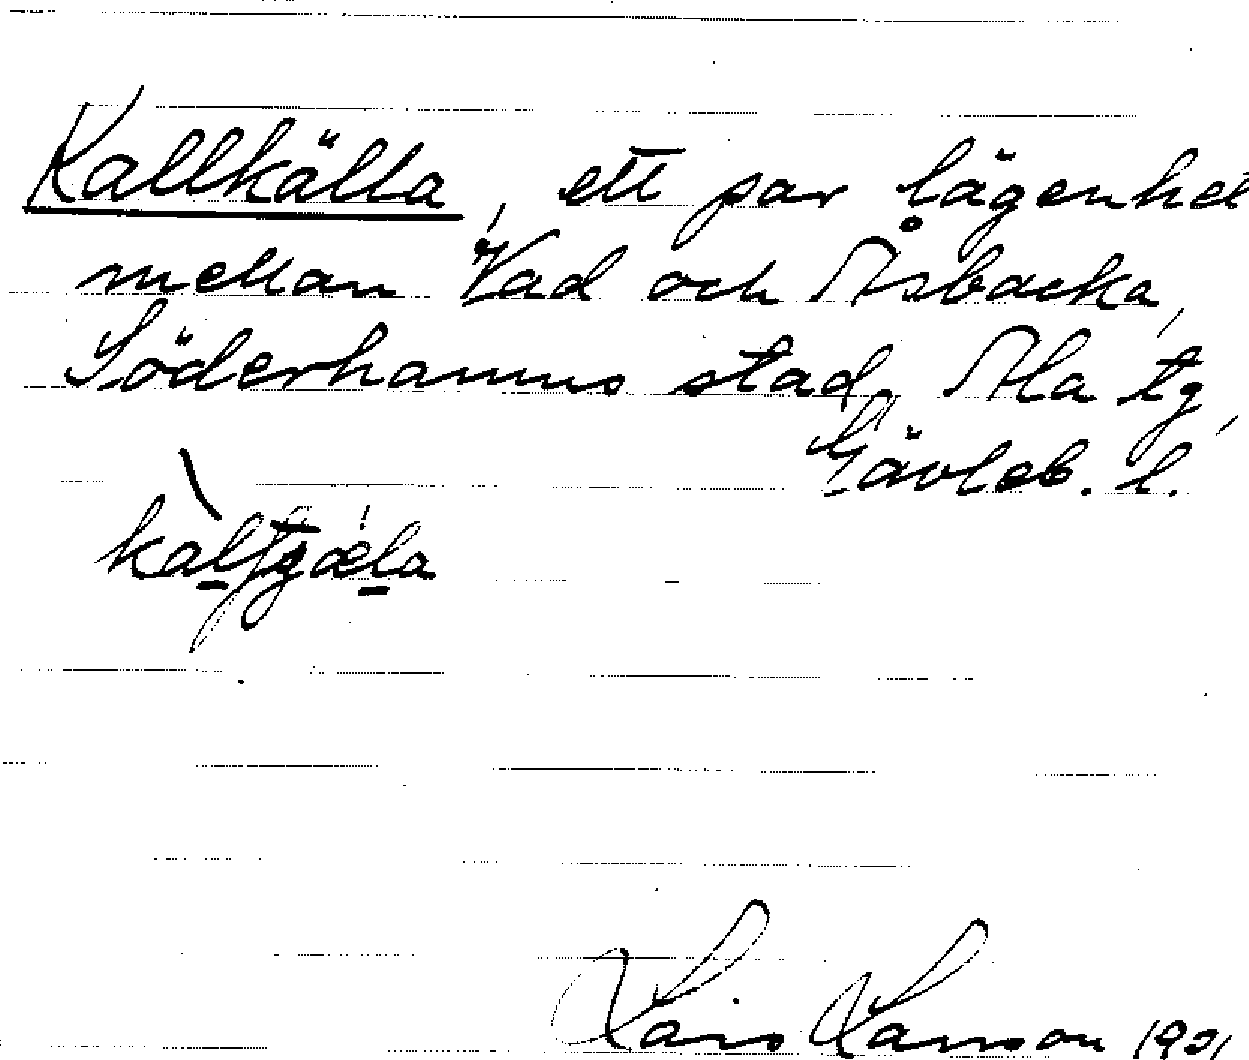 Kallkälla, ett par lägenhet
mellan Vad och Åsbacka,
Söderhamns stad, Ala tg,
Gävleb. l.
Lars Larsson